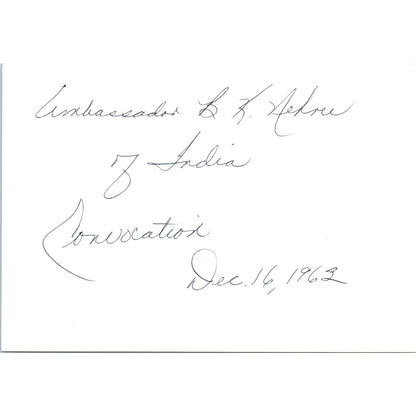 Ambassador B K. Nehru
of India
Convocation
Dec. 16, 1962